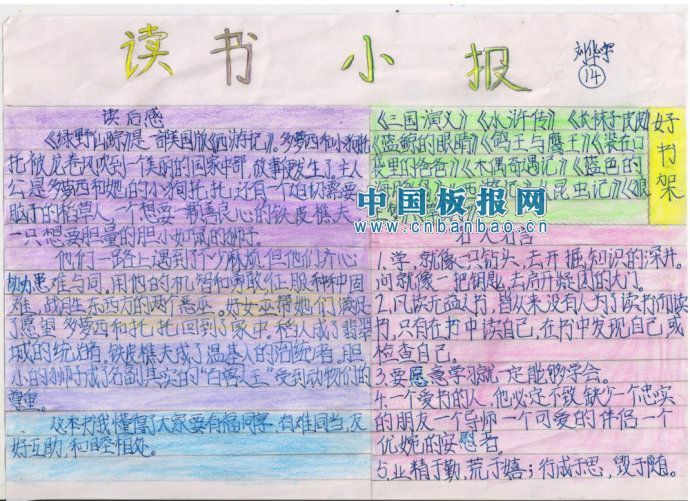 读书小报
刘华宇
14
读后感
《绿野仙踪》是一部美国版《西游记》。多萝西和小狗托
托被龙卷风吹到一个美丽的国家中部,故事便发生了。主人
公是多萝西和她的小狗托托,还有一个迫切需要
脑子的稻草人,一个想要一颗善良心的铁皮樵夫
一只想要胆量的胆小如鼠的狮子。
他们一路上遇到了不少麻烦但他们齐心
协力患难与同。用他的机智和勇敢征服种种困
难,战胜东西方的两个恶巫。好女巫帮她们满足
了愿望多萝西和托托回到了家中。稻人成了翡翠
城的统治者,铁皮樵夫成了温基人的治统者,胆
小的狮子成了名副其实的“百兽之王”受到动物们的
尊重。
这本书我懂得了大家要有福同享,有难同当,友
好互助,和睦相处。
《三国演义》《水浒传》《长袜子皮皮》
《蓝鲸的眼睛》《鸽王与鹰王》《装在口
袋里的爸爸》《木偶奇遇记》《蓝色的
昆虫记》《狼
好书架
中国板报网
www.cnbanbao.cn
名人名言
1.学,就像一只钻头,去开掘知识的深井。
问就像一把钥匙,去启开疑团的大门。
2.凡读无益之书,皆从来没有人为了读书而读
书,只有在书中读自己,在书中发现自己,或
检查自己。
3.要愿意学习就一定能够学会。
4.一个爱书的人,他必定不致缺少一个忠实
的朋友一个导师一个可爱的伴侣一个
优婉的安慰者。
5,业精于勤,荒于嬉;行成于思,毁于随。